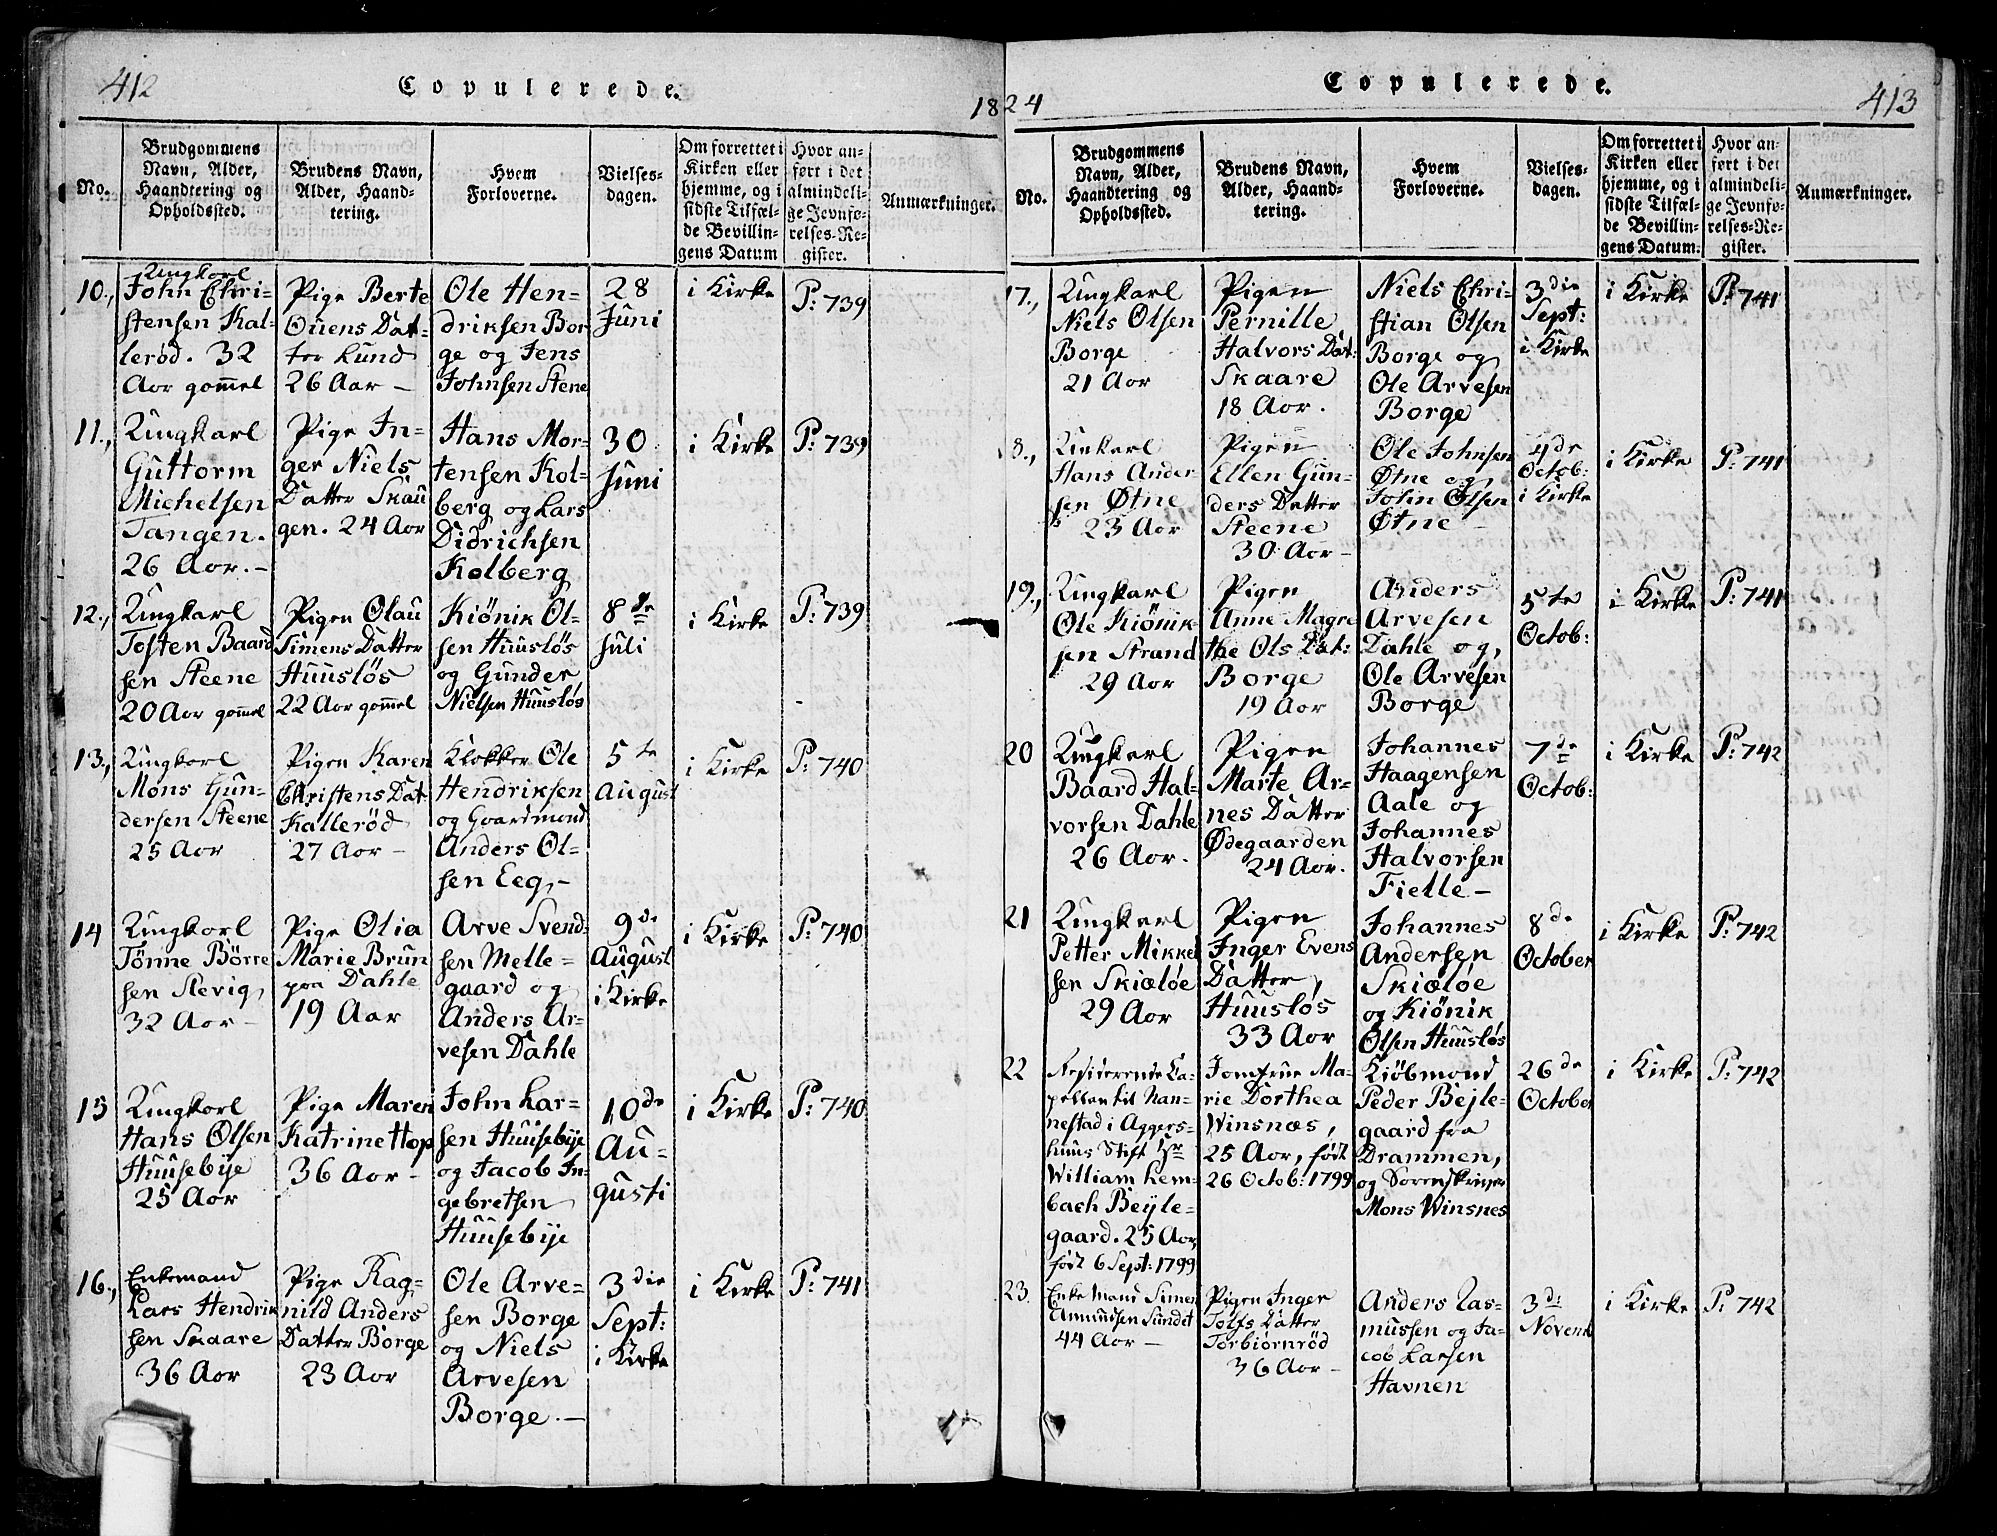 412
Copulerede.
18
No.
Brudgommens
Navn, Alder,
Haandtering og
Opholdssted.
Brudens Navn,
Alder, Haand-
tering.
Hvem
Forloverne.
Vielses-
dagen.
Om forrettet i
Kirken eller
hjemme, og i
sidste Tilfæl-
de Bevillin-
gens Datum
Hvor an-
ført i det
almindeli-
ge Jevnfø-
relses-Re-
gister.
Anmærkninger.
10.,
Ungkarl
John Chri-
stensen Kal-
lerød. 32
Aar gammel
Pige Berte
Ouens Dat-
ter Lund
26 Aar –
Ole Hen-
driksen Bor
ge og Jens
Johnsen Stene
28
Juni
i Kirke
P: 739
11.,
Ungkarl
Guttorm
Michelsen
Tangen.
26 Aar. –
Pige In-
ger Niels
Datter Skau
gen. 24 Aar
Hans Mor-
tensen Kol-
berg og Lars
Didrichsen
Kolberg
30
Juni
i Kirke
P: 739
12.,
Ungkarl
Tosten Baard
sen Steene
20 Aar gammel
Pigen Olau
Simens Datter
Huusløs
22 Aar gammel
Kiönik Ol-
sen Huusløs
og Gunder
Nielsen Huusløs
8de
Juli
i Kirke
P: 739
13.,
Ungkarl
Mons Gun-
dersen Steene
25 Aar
Pigen Karen
Christens Dat
Kallerød
27 Aar –
Klokker Ole
Hendriksen
og Gaardmand
Anders Ol-
sen Eeg, –
5te
August
i Kirke
P: 740
14
Ungkarl
Tönne Börre
sen Slevig,
32 Aar –
Pige Olia
Marie Brun
paa Dahle
19 Aar
Arve Svend
sen Melle-
gaard og
Anders Ar-
vesen Dahle
9de
August
i Kirke
i Kirke
P: 740
15
Ungkarl
Hans Olsen
Huusebye
25 Aar
Pige Maren
Katrine Hop
36 Aar –
John Lar-
sen Huusebye
og Jacob In-
gebretsen
Huusebye
10de
Au-
gusti
i Kirke
P: 740
16.,
Enkemand
Lars Hendrik
sen Skaare
36 Aar
Pige Rag-
nild Anders
Datter Borge
23 Aar
Ole Arve-
sen Borge
og Niels
Arvesen
Borge. –
3die
Sept:
i Kirke
i Kirke
P: 741
24
Copulerede.
413
No.
Brudgommens
Navn, Alder,
Haandtering og
Opholdssted.
Brudens Navn,
Alder, Haand-
tering.
Hvem
Forloverne.
Vielses-
dagen.
Om forrettet i
Kirken eller
hjemme, og i
sidste Tilfæl-
de Bevillin-
gens Datum.
Hvor an-
ført i det
almindeli-
ge Jevnfø-
relses-Re-
gister.
Anmærkninger.
17.,
Ungkarl
Niels Olsen
Borge
21 Aar
Pigen
Pernille
Halvors Dat:
Skaare
18 Aar.
Niels Chri-
stian Olsen
Borge og
Ole Arvesen
Borge
3die
Sept:
i Kirke
i Kirke
P: 741
8.,
Unkarl
Hans Ander
sen Øtne
23 Aar
Pigen
Ellen Gun-
ders Datter
Steene
30 Aar –
Ole Johnsen
Øtne og
John Olsen
Øtne –
4de
Octob:
i Kirke
i Kirke
P: 741
19.,
Ungkarl
Ole Kiönik-
sen Strand
29 Aar
Pigen
Anne Magre
the Ols Dat:
Borge
19 Aar
Anders
Arvesen
Dahle og,
Ole Arvesen
Borge
5te
Octob:
i Kirke
P: 741
20
Ungkarl
Baard Hal-
vorsen Dahle
26 Aar.
Pigen
Marte Ar-
nes Datter
Ødegaarden
24 Aar.
Johannes
Haagensen
Aale og
Johannes
Halvorsen
Fielle –
7de
Octob:
i Kirke
P: 742
21
Ungkarl
Petter Mikkel
sen Skiæløe
29 Aar
Pigen
Inger Evens
Datter,
Huusløs
33 Aar
Johannes
Andersen
Skiæløe
og Kiönik
Olsen Huusløs
8de
October
i Kirke
P: 742
22
Residerende Ca-
pellan til Nan-
nestad i Aggers-
huus Stift Hr
William Lem-
bach Beyle-
gaard. 25 Aar,
født 6 Sept: 1799
Jomfrue Ma-
rie Dorthea
Winsnæs,
25 Aar, født
26 Octob: 1799
Kiøbmand
Peder Bejle-
gaard fra
Drammen,
og Sorenskriver
Mons Winsnes
26de
October
i Kirke
P: 742
23.
Enke Mand Simen
Amundsen Sundet
44 Aar –
Pigen Inger
Tolfs Datter
Torbiørnrød
36 Aar –
Anders Ras-
mussen og Ja-
cob Larsen
Havnen
3di
Novemb
i Kirke
P: 742